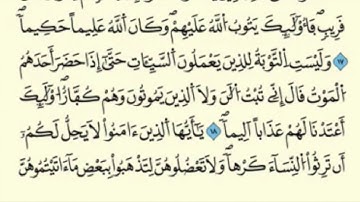 قَرِيبٖ فَأُوْلَٰٓئِكَ يَتُوبُ اُ۬للَّهُ عَلَيْهِمْۖ وَكَانَ اَ۬للَّهُ عَلِيماً حَكِيماٗۖ
١٧ وَلَيْسَتِ اِ۬لتَّوْبَةُ لِلذِينَ يَعْمَلُونَ اَ۬لسَّيِّـَٔاتِ حَتَّىٰٓ إِذَا حَضَرَ أَحَدَهُمُ
اُ۬لْمَوْتُ قَالَ إِنِّے تُبْتُ اُ۬لَٰنَ وَلَا اَ۬لذِينَ يَمُوتُونَ وَهُمْ كُفَّارٌۖ اوْلَٰٓئِكَ
أَعْتَدْنَا لَهُمْ عَذَاباً اَلِيماٗۖ ١٨ يَٰٓأَيُّهَا اَ۬لذِينَ ءَامَنُواْ لَا يَحِلُّ لَكُمُۥٓ
أَن تَرِثُواْ اُ۬لنِّسَآءَ كَرْهاٗۖ وَلَا تَعْضُلُوهُنَّ لِتَذْهَبُواْ بِبَعْضِ مَآ ءَاتَيْتُمُوهُنَّ